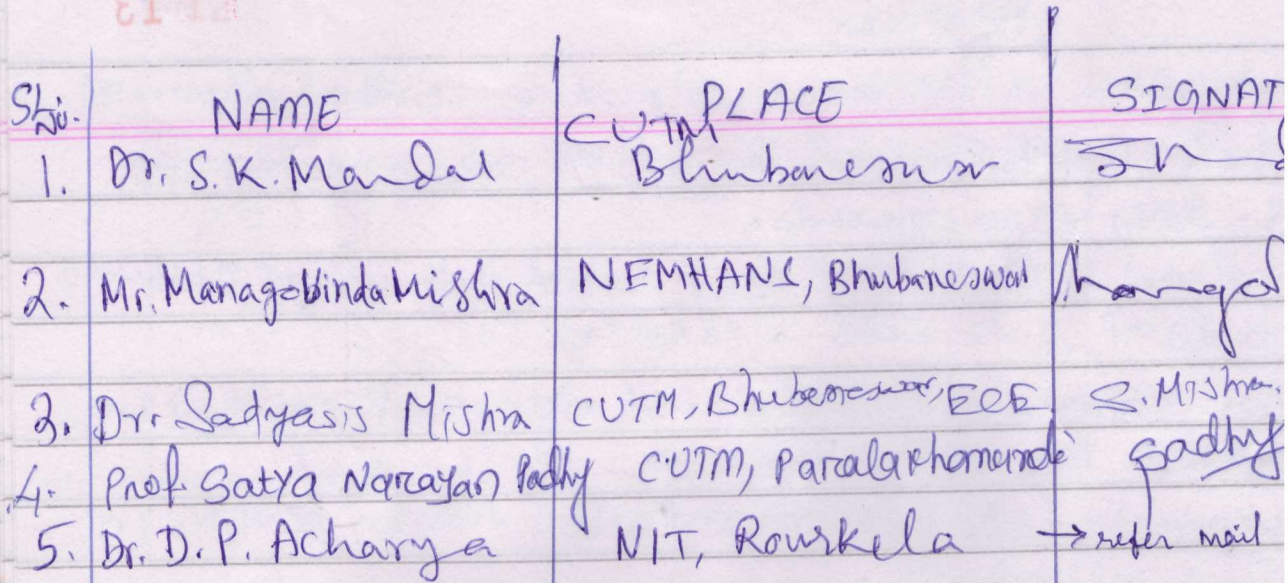 Sl.No. NAME PLACE SIGNAT
CUTM
1. Dr. S.K. Mandal Bhubaneswar
2. Mr. Managobinda Mishra NEMHANS, Bhubaneswar
3. Dr. Satyasis Mishra CUTM, Bhubaneswar, ECE S. Mishra.
4. Prof. Satya Narayan Padhy CUTM, Paralakhemundi Padhy
5. Dr. D.P. Acharya NIT, Rourkela → refer mail